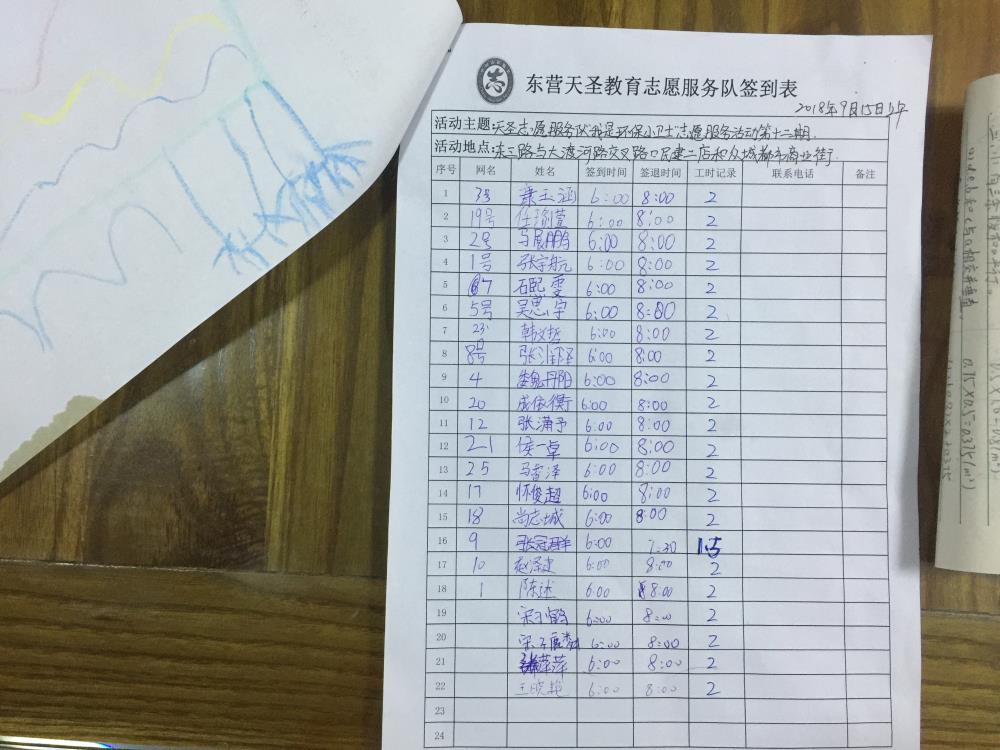 志
东营天圣教育志愿服务队签到表
2018年9月15日
活动主题:天圣志愿服务队"我是环保小卫士"志愿服务活动第十二期.
活动地点:东三路与大渡河路交叉路口民建二店和众城都市商业街.
序号 网名 姓名 签到时间 签退时间 工时记录 联系电话 备注
1 3号 6:00 8:00 2
2 19号 任渝萱 6:00 8:00 2
3 2号 马晨鹏 6:00 8:00 2
4 1号 张宇航 6:00 8:00 2
5 7 石熙雯 6:00 8:00 2
6 5号 吴思宇 6:00 8:00 2
7 23 韩文哲 6:00 8:00 2
8 8号 张 6:00 8:00 2
9 4 魏丹阳 6:00 8:00 2
10 20 成依衡 6:00 8:00 2
11 12 张潇予 6:00 8:00 2
12 21 侯一卓 6:00 8:00 2
13 25 马香泽 6:00 8:00 2
14 17 怀俊超 6:00 8:00 2
15 18 尚志城 6:00 8:00 2
16 9 张冠群 6:00 7:30 1.5
17 10 赵泽 6:00 8:00 2
18 1 陈述 6:00 8:00 2
19 宋 6:00 8:00 2
20 宋 6:00 8:00 2
21 萍萍 6:00 8:00 2
22 王晓艳 6:00 8:00 2
23
24
0.75×0.5=0.375(m²)